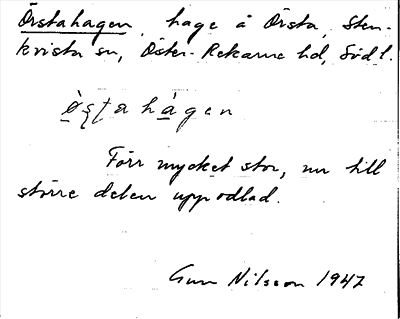 Örstahagen, hage å Örsta, Sten-
kvista sn, Öster-Rekarne hd, Södl.
Förr mycket stor, nu till
större delen uppodlad.
Gun Nilsson 1947